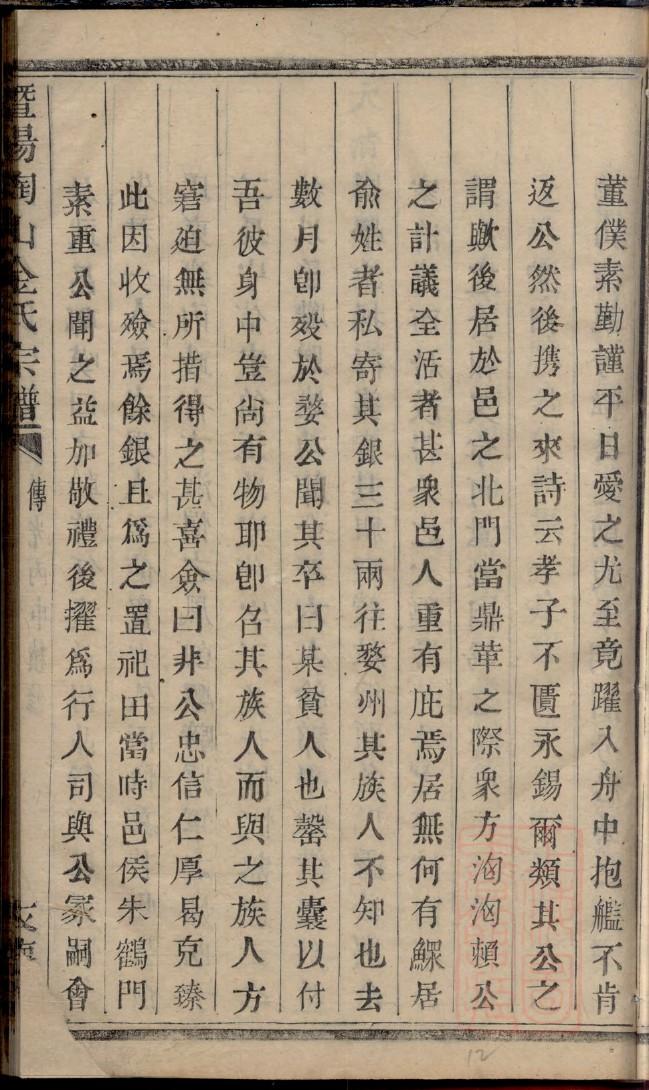 董僕素勤謹平日愛之尤至竟躍入舟中抱艦不肯
返公然後携之來詩云孝子不匱永錫爾類其公之
謂歟後居於邑之北門當鼎革之際衆方洶洶賴公
之計議全活者甚衆邑人重有庇焉居無何有鰥居
俞姓者私寄其銀三十兩往婺州其族人不知也去
數月卽歿於婺公聞其卒曰某貧人也罄其囊以付
吾彼身中豈尙有物耶卽名其族人而與之族人方
窘迫無所措得之甚喜僉曰非公忠信仁厚曷克臻
此因收殮焉餘銀且爲之置祀田當時邑侯朱鶴門
素重公聞之益加敬禮後擢爲行人司與公冢嗣會
暨陽陶山金氏宗譜
傳
12